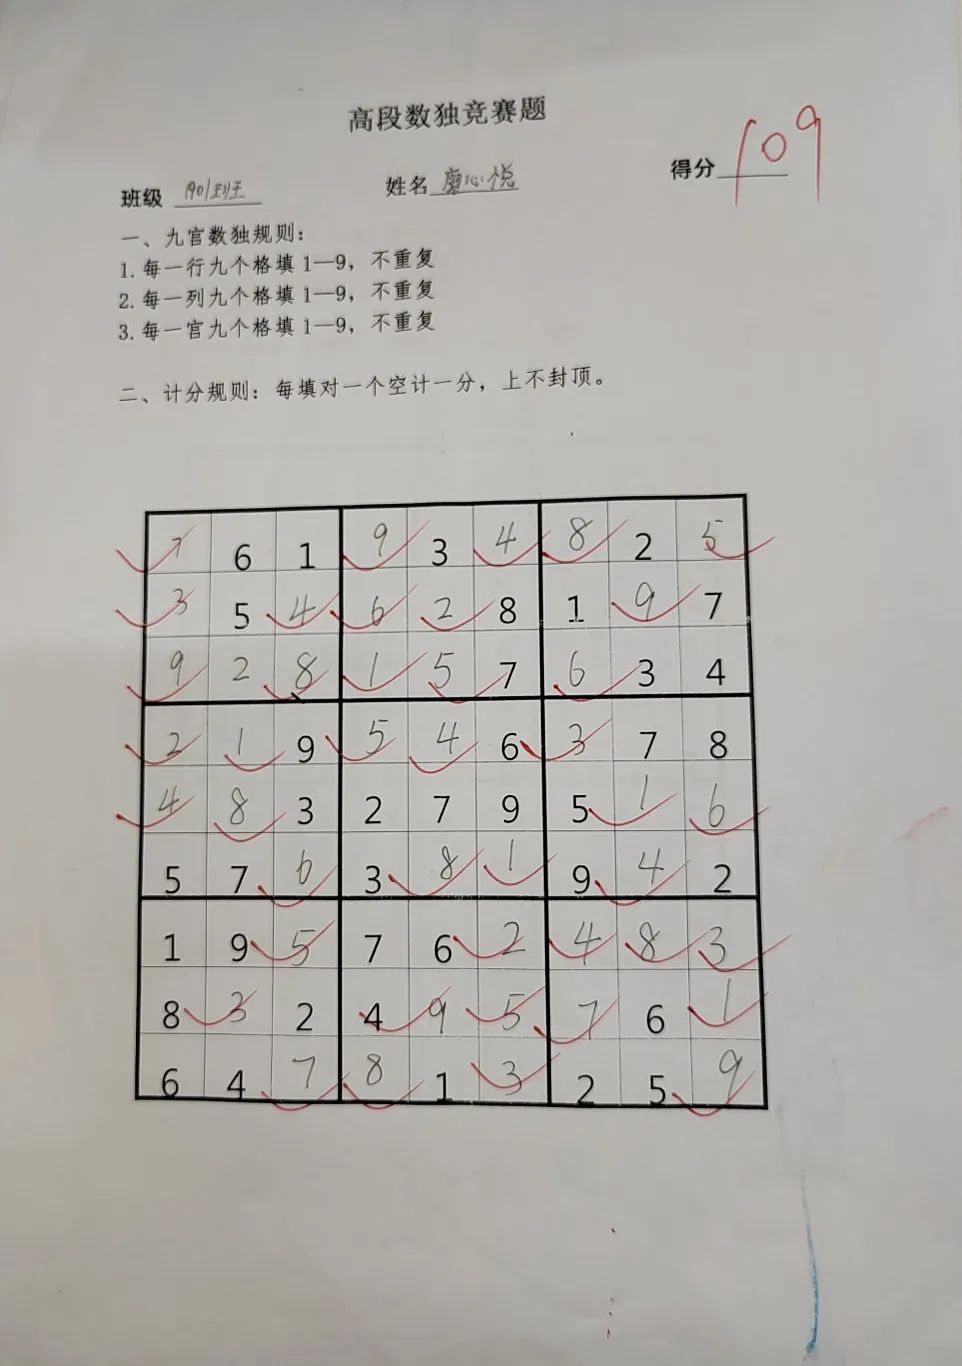 高段数独竞赛题
班级 901班 姓名 廖心悦 得分 109
一、九宫数独规则：
1. 每一行九个格填 1—9，不重复
2. 每一列九个格填 1—9，不重复
3. 每一宫九个格填 1—9，不重复
二、计分规则：每填对一个空计一分，上不封顶。
7 6 1 9 3 4 8 2 5
3 5 4 6 2 8 1 9 7
9 2 8 1 5 7 6 3 4
2 1 9 5 4 6 3 7 8
4 8 3 2 7 9 5 1 6
5 7 6 3 8 1 9 4 2
1 9 5 7 6 2 4 8 3
8 3 2 4 9 5 7 6 1
6 4 7 8 1 3 2 5 9